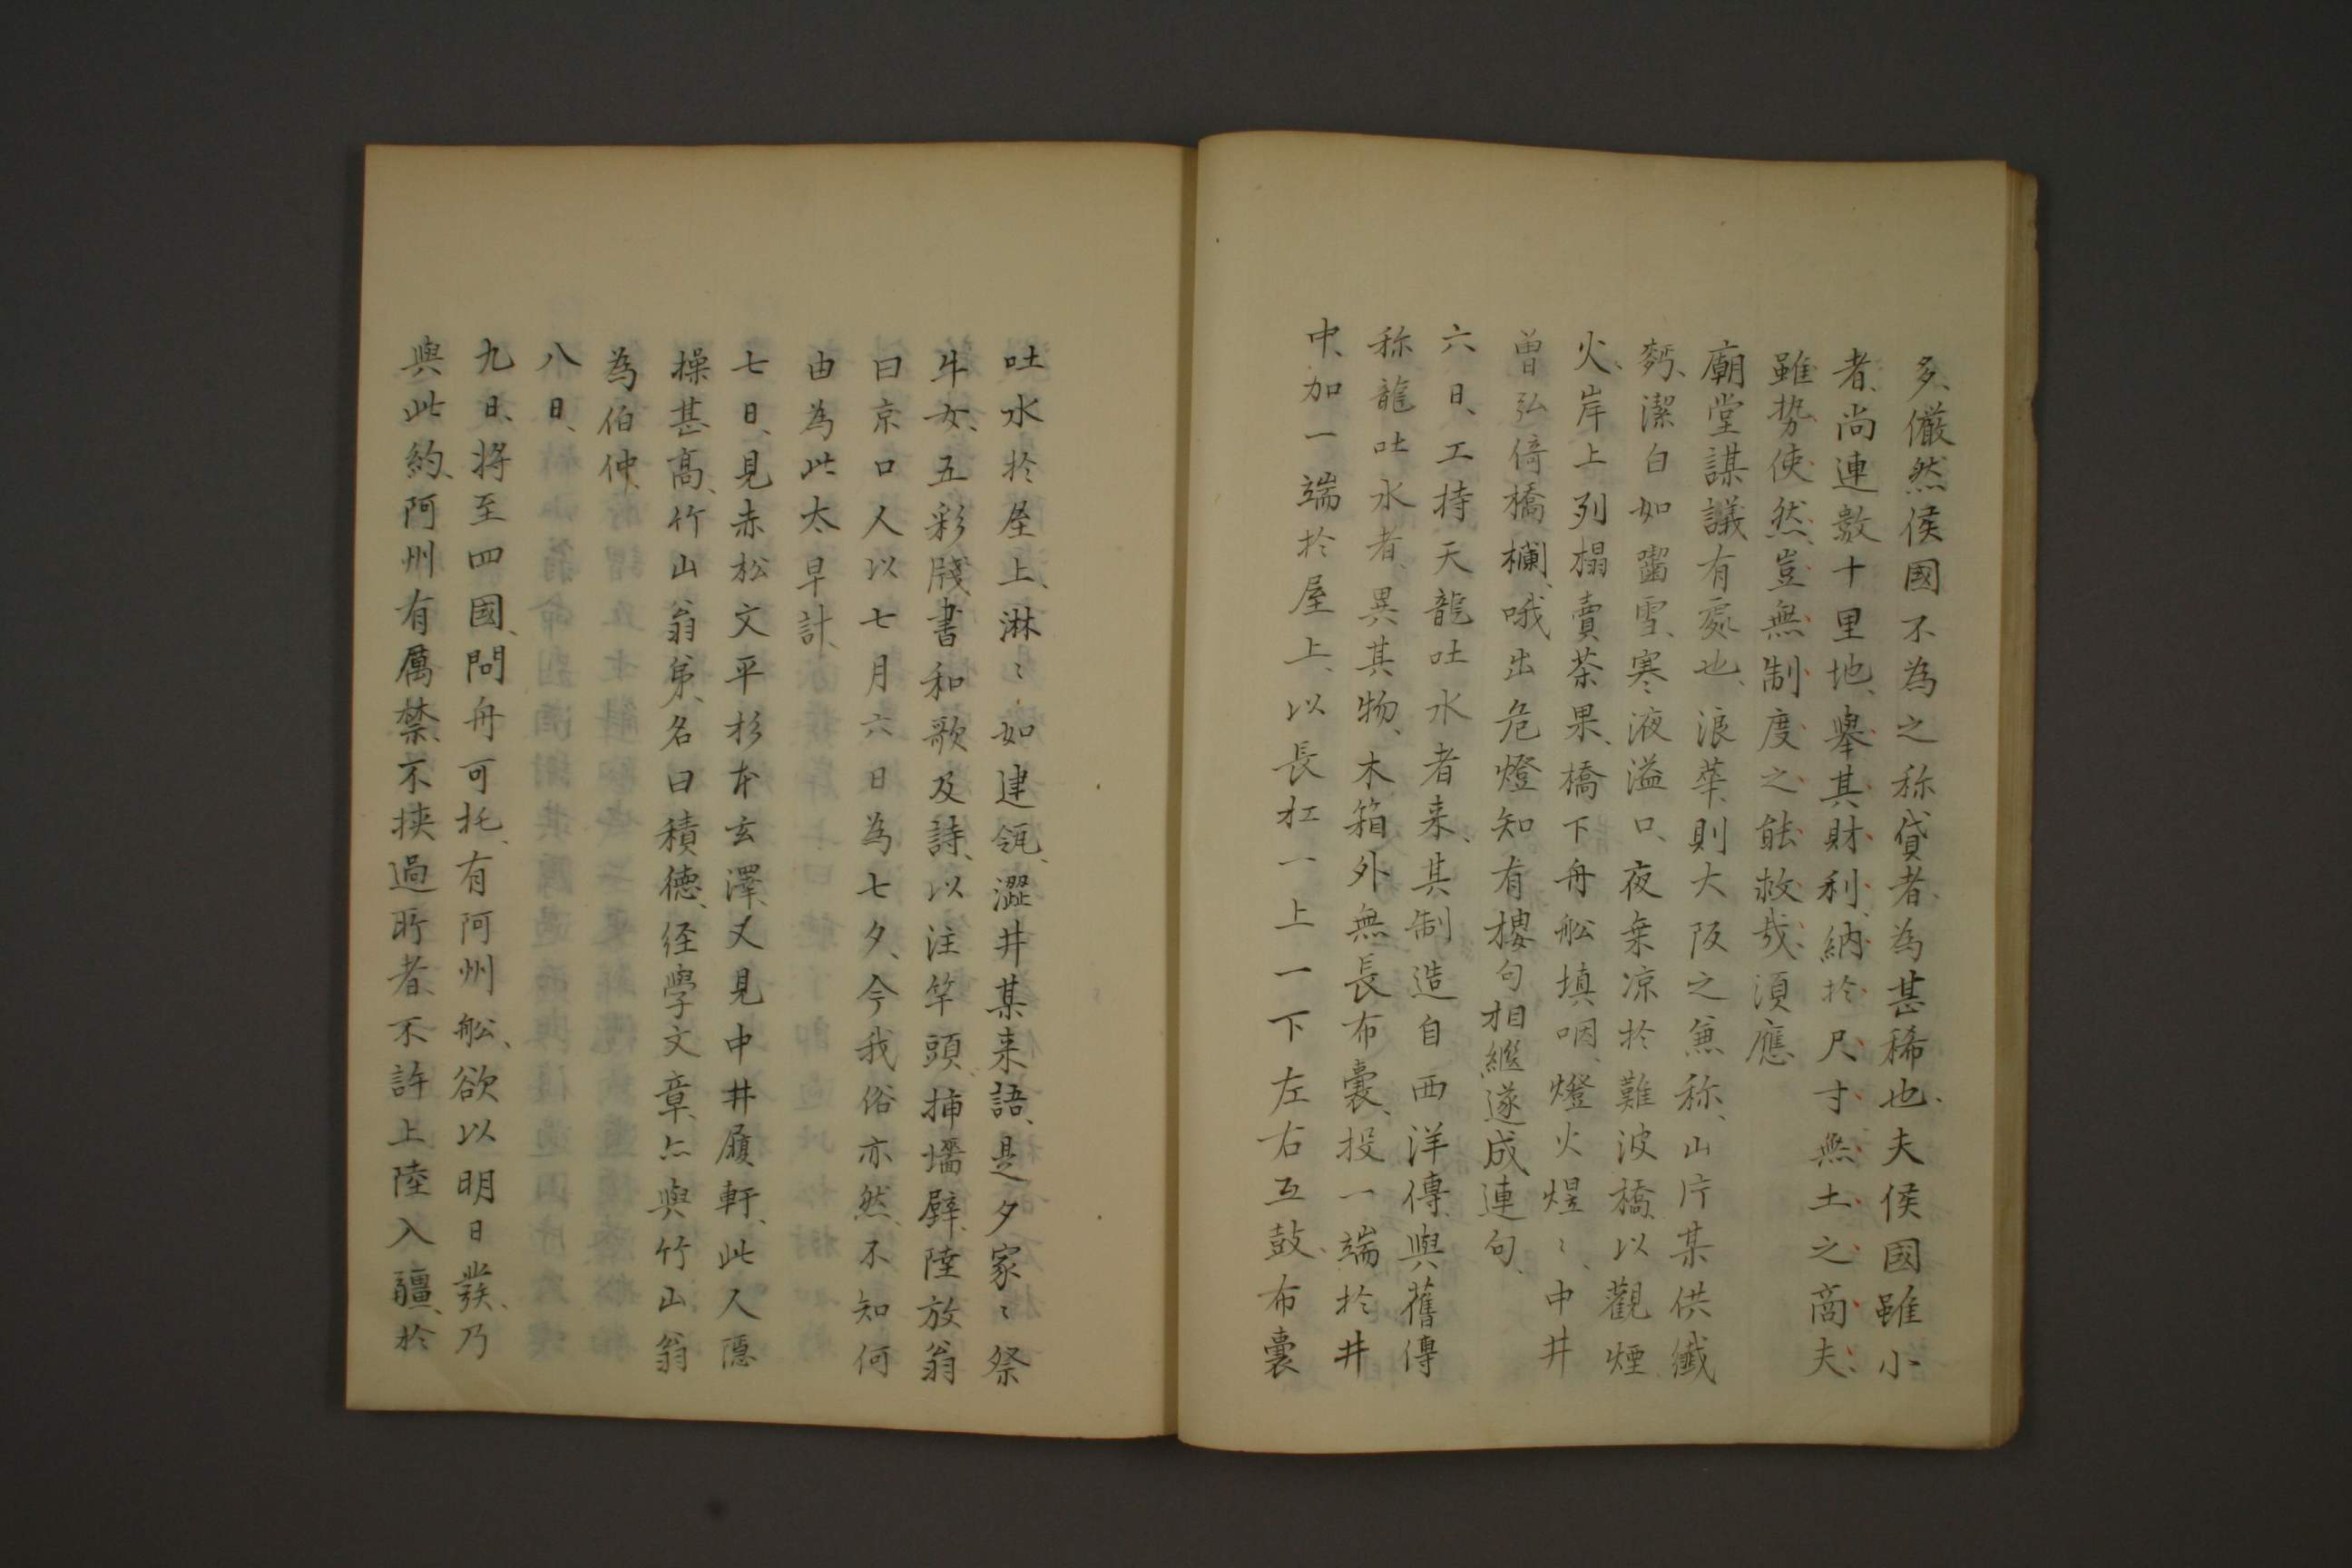 多、儼然侯國不為之称貸者、為甚稀也、夫侯國雖小
者、尚連數十里地、擧其財利、納於尺寸無土之商夫、
雖势使然、豈無制度之能救哉、湏應
廟堂謀議有處也、浪華、則大阪之兼称、山片某供纎
麪、潔白如嚙雪、寒液溢口、夜乗凉於難波橋、以觀煙
火、岸上列榻賣茶果、橋下舟舩填咽、燈火煜〻、中井
曽弘倚橋欄、哦出危燈知有樓句、相繼遂成連句、
六日、工持天龍吐水者来、其制造自西洋傳、與舊傳
称龍吐水者、異其物、木箱外無長布嚢、投一端於井
中、加一端於屋上、以長杠一上一下左右互鼓、布嚢
吐水於屋上、淋〻如建瓴、澀井某来語、是夕家〻祭
牛女、五彩牋書和歌及詩、以注竿頭、挿墻壁、陸放翁
曰京口人以七月六日為七夕、今我俗亦然、不知何
由為此太早計、
七日、見赤松文平杉本玄澤、又見中井履軒、此人隱
操甚高、竹山翁弟、名曰積德、経學文章、亦與竹山翁
為伯仲、
八日、
九日、将至四國、問舟可托、有阿州舩、欲以明日發、乃
與此約、阿州有厲禁、不挟過所者、不許上陸入疆、於